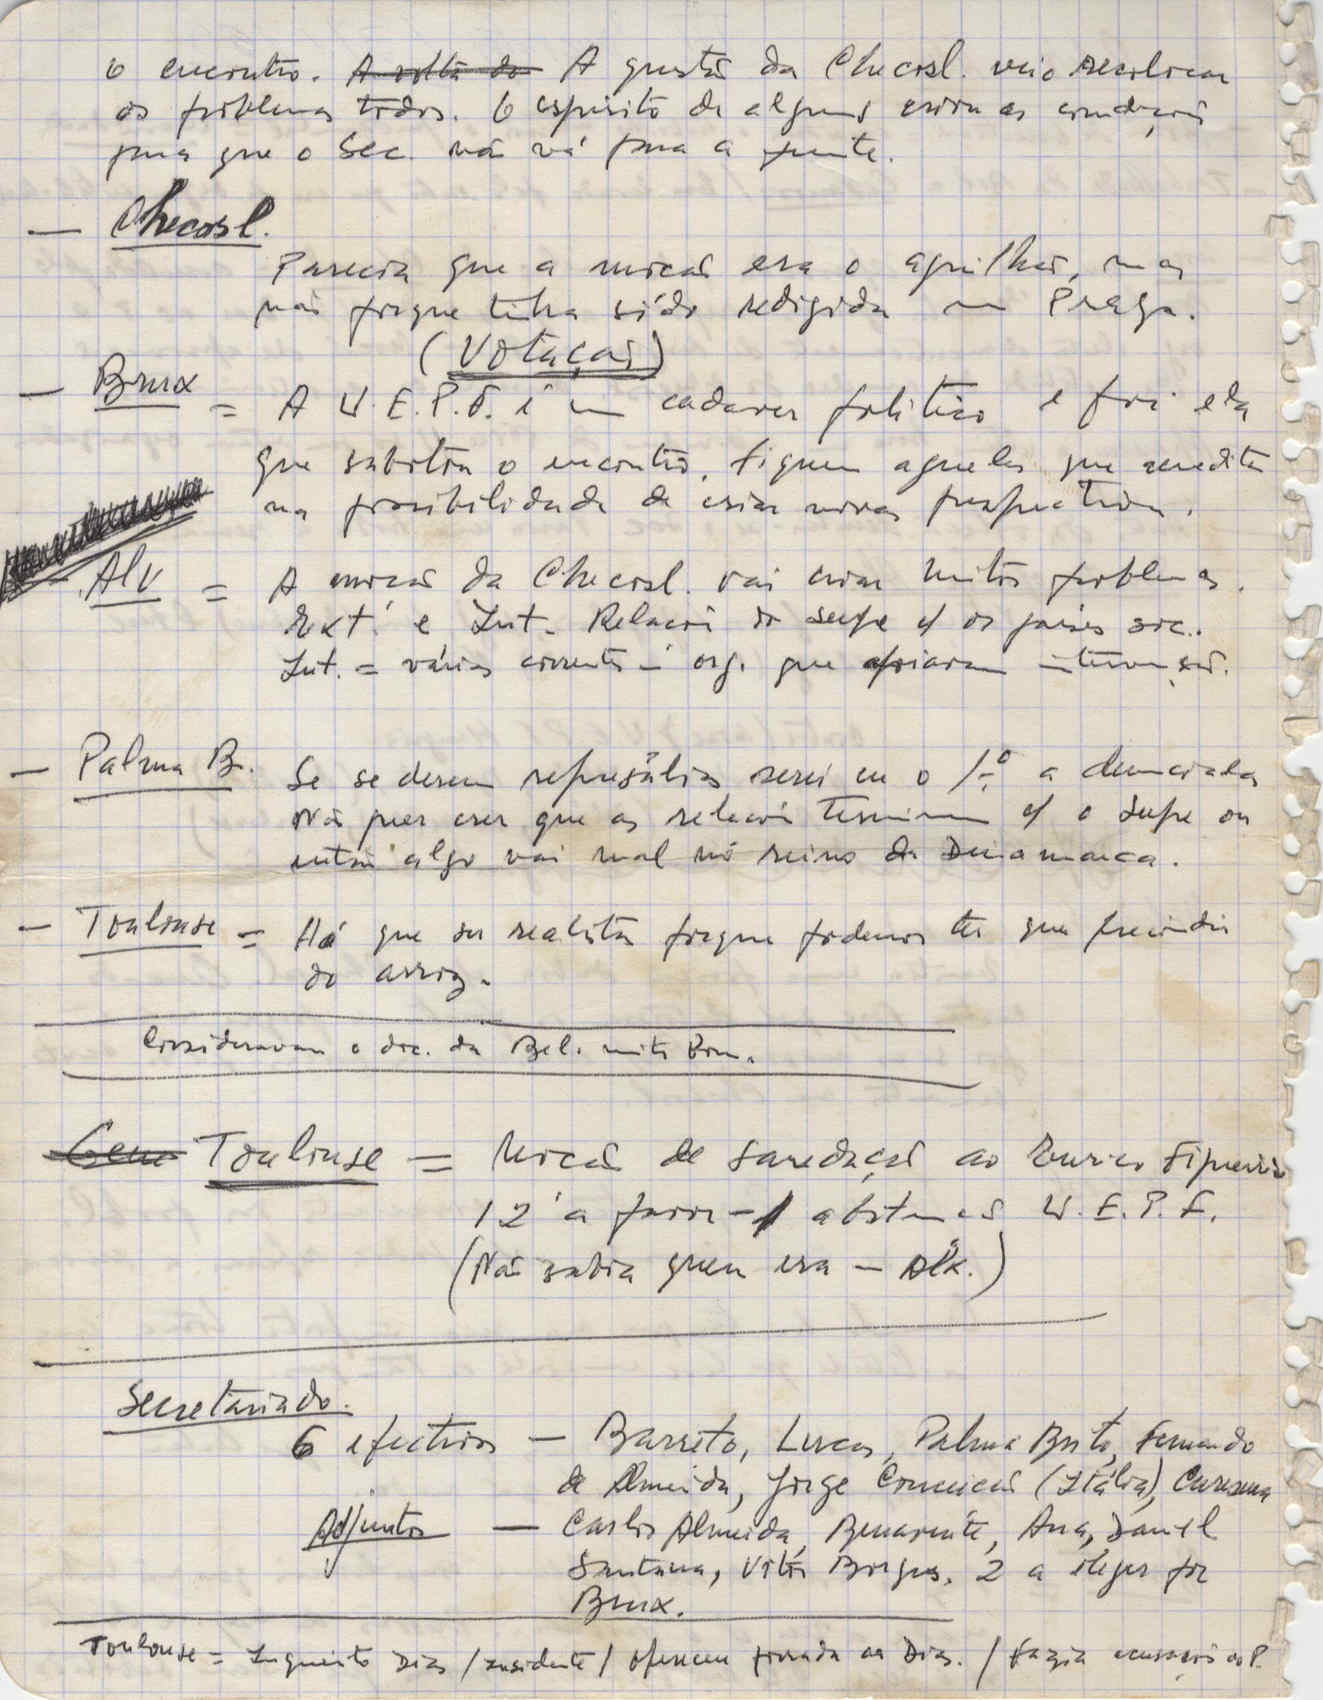 o encontro. A volta do A questão da Checosl. veio recolocar
os problemas todos. O espírito de alguns criou as condições
para que o Sec. não vá para a frente.
— Checosl.
Parecia que a moção era o aguilhão, mas
não porque tinha sido redigida em Praga.
(Votação)
— Brux = A U.E.P.F. é um cadaver político e foi ela
que sabotou o encontro. Fiquem aqueles que acreditam
na possibilidade de criar novas perspectivas.
— Alv = A moção da Checosl. vai criar muitos problemas.
Ext. e Int. Relações do Supe c/ os países soc..
Int. = várias correntes org. que apoiaram intervenção.
— Palma B. Se se derem represálias serei eu o 1º a denunciá-las
Não quer crer que as relações terminem c/ o Supe ou
então algo vai mal no reino da Dinamarca.
— Toulouse = Há que ser realista porque podemos ter que prescindir
do arroz.
Consideravam o doc. da Bel. muito bom.
Toulouse = Moção de saudação ao Eurico Figueiredo
12 a favor – 1 abstenção U.E.P.F.
(Não sabia quem era —
Secretariado.
6 efectivos — Barreto, Lucas, Palma Brito, Fernando
de Almeida, Jorge Conceição (Itália), Caresma
Adjuntos — Carlos Almeida, Benavente, Ana, Daniel
Santana, Vitor Borges, 2 a eleger por
Brux.
Toulouse = Inquérito Dias / residente / ofereceu porrada ao Dias. / Fazia acusações ao P.